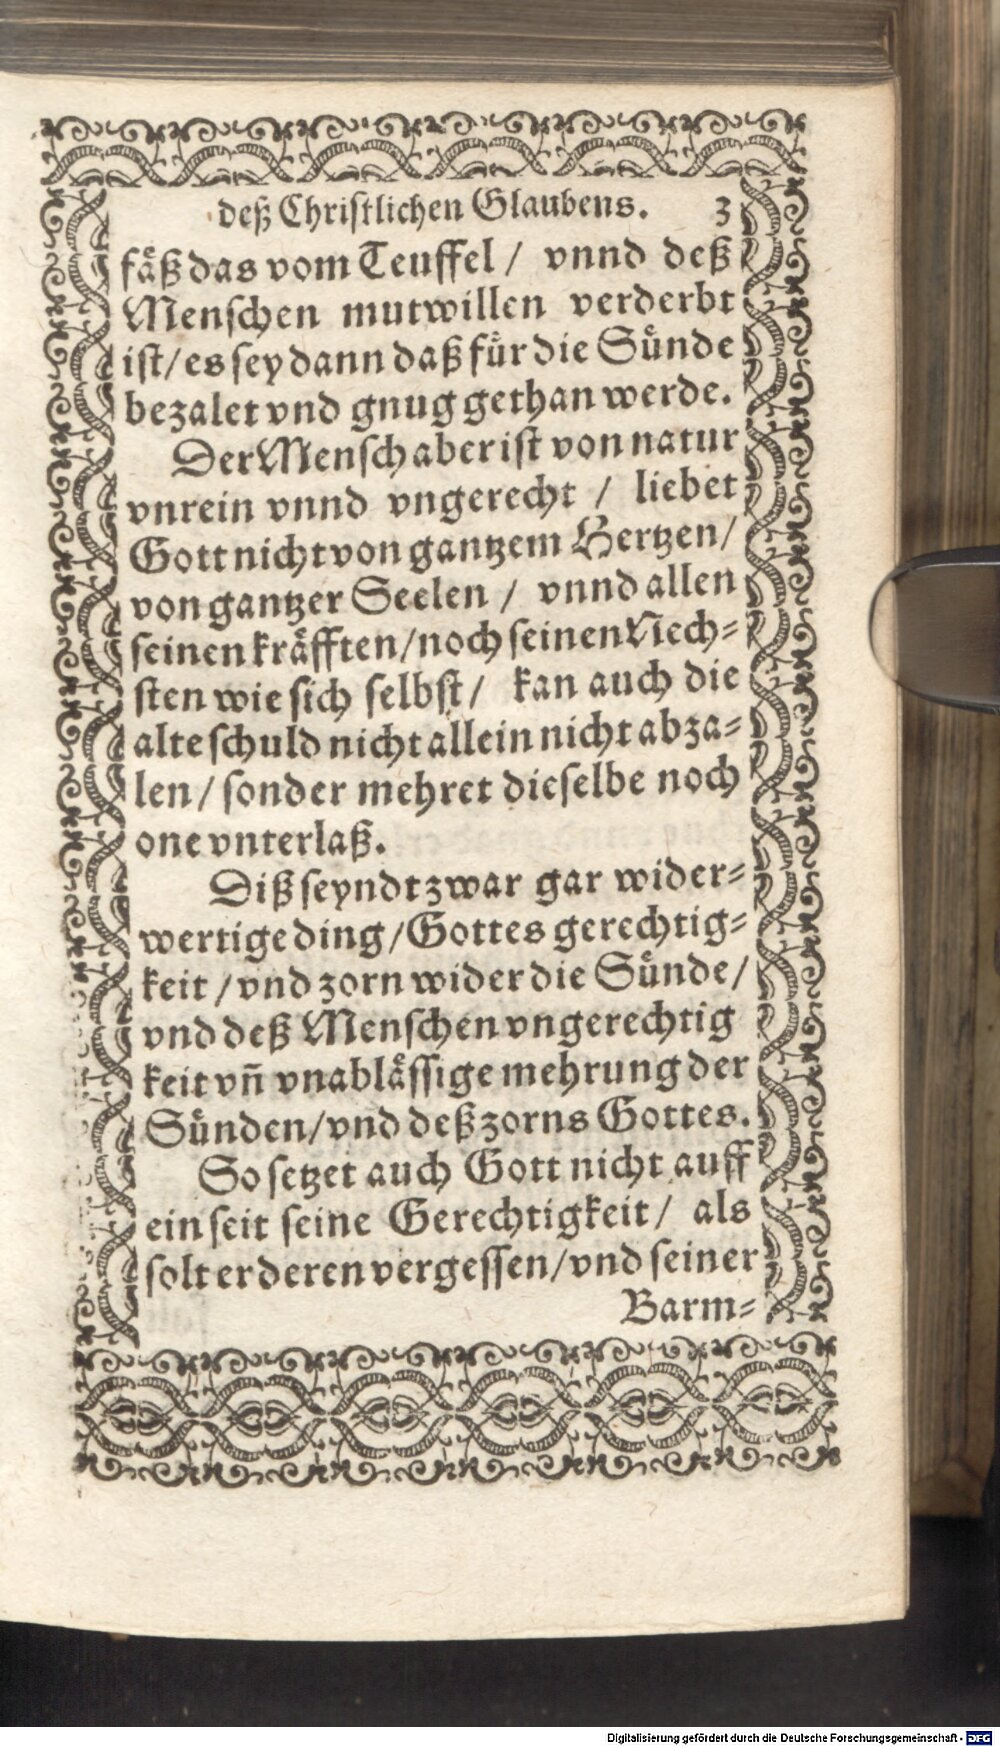 deß Christlichen Glaubens. 3
fäß das vom Teuffel / vnnd deß
Menschen mutwillen verderbt
ist / es sey dann daß für die Sünde
bezalet vnd gnug gethan werde.
Der Mensch aber ist von natur
vnrein vnnd vngerecht / liebet
Gott nicht von gantzem Hertzen /
von gantzer Seelen / vnnd allen
seinen kräfften / noch seinen Nech⸗
sten wie sich selbst / kan auch die
alte schuld nicht allein nicht abza⸗
len / sonder mehret dieselbe noch
one vnterlaß.
Diß seyndt zwar gar wider⸗
wertige ding / Gottes gerechtig⸗
keit / vnd zorn wider die Sünde /
vnd deß Menschen vngerechtig
keit vn̄ vnablässige mehrung der
Sünden / vnd deß zorns Gottes.
So setzet auch Gott nicht auff
ein seit seine Gerechtigkeit / als
solt er deren vergessen / vnd seiner
Barm⸗
Digitalisierung gefördert durch die Deutsche Forschungsgemeinschaft - DFG